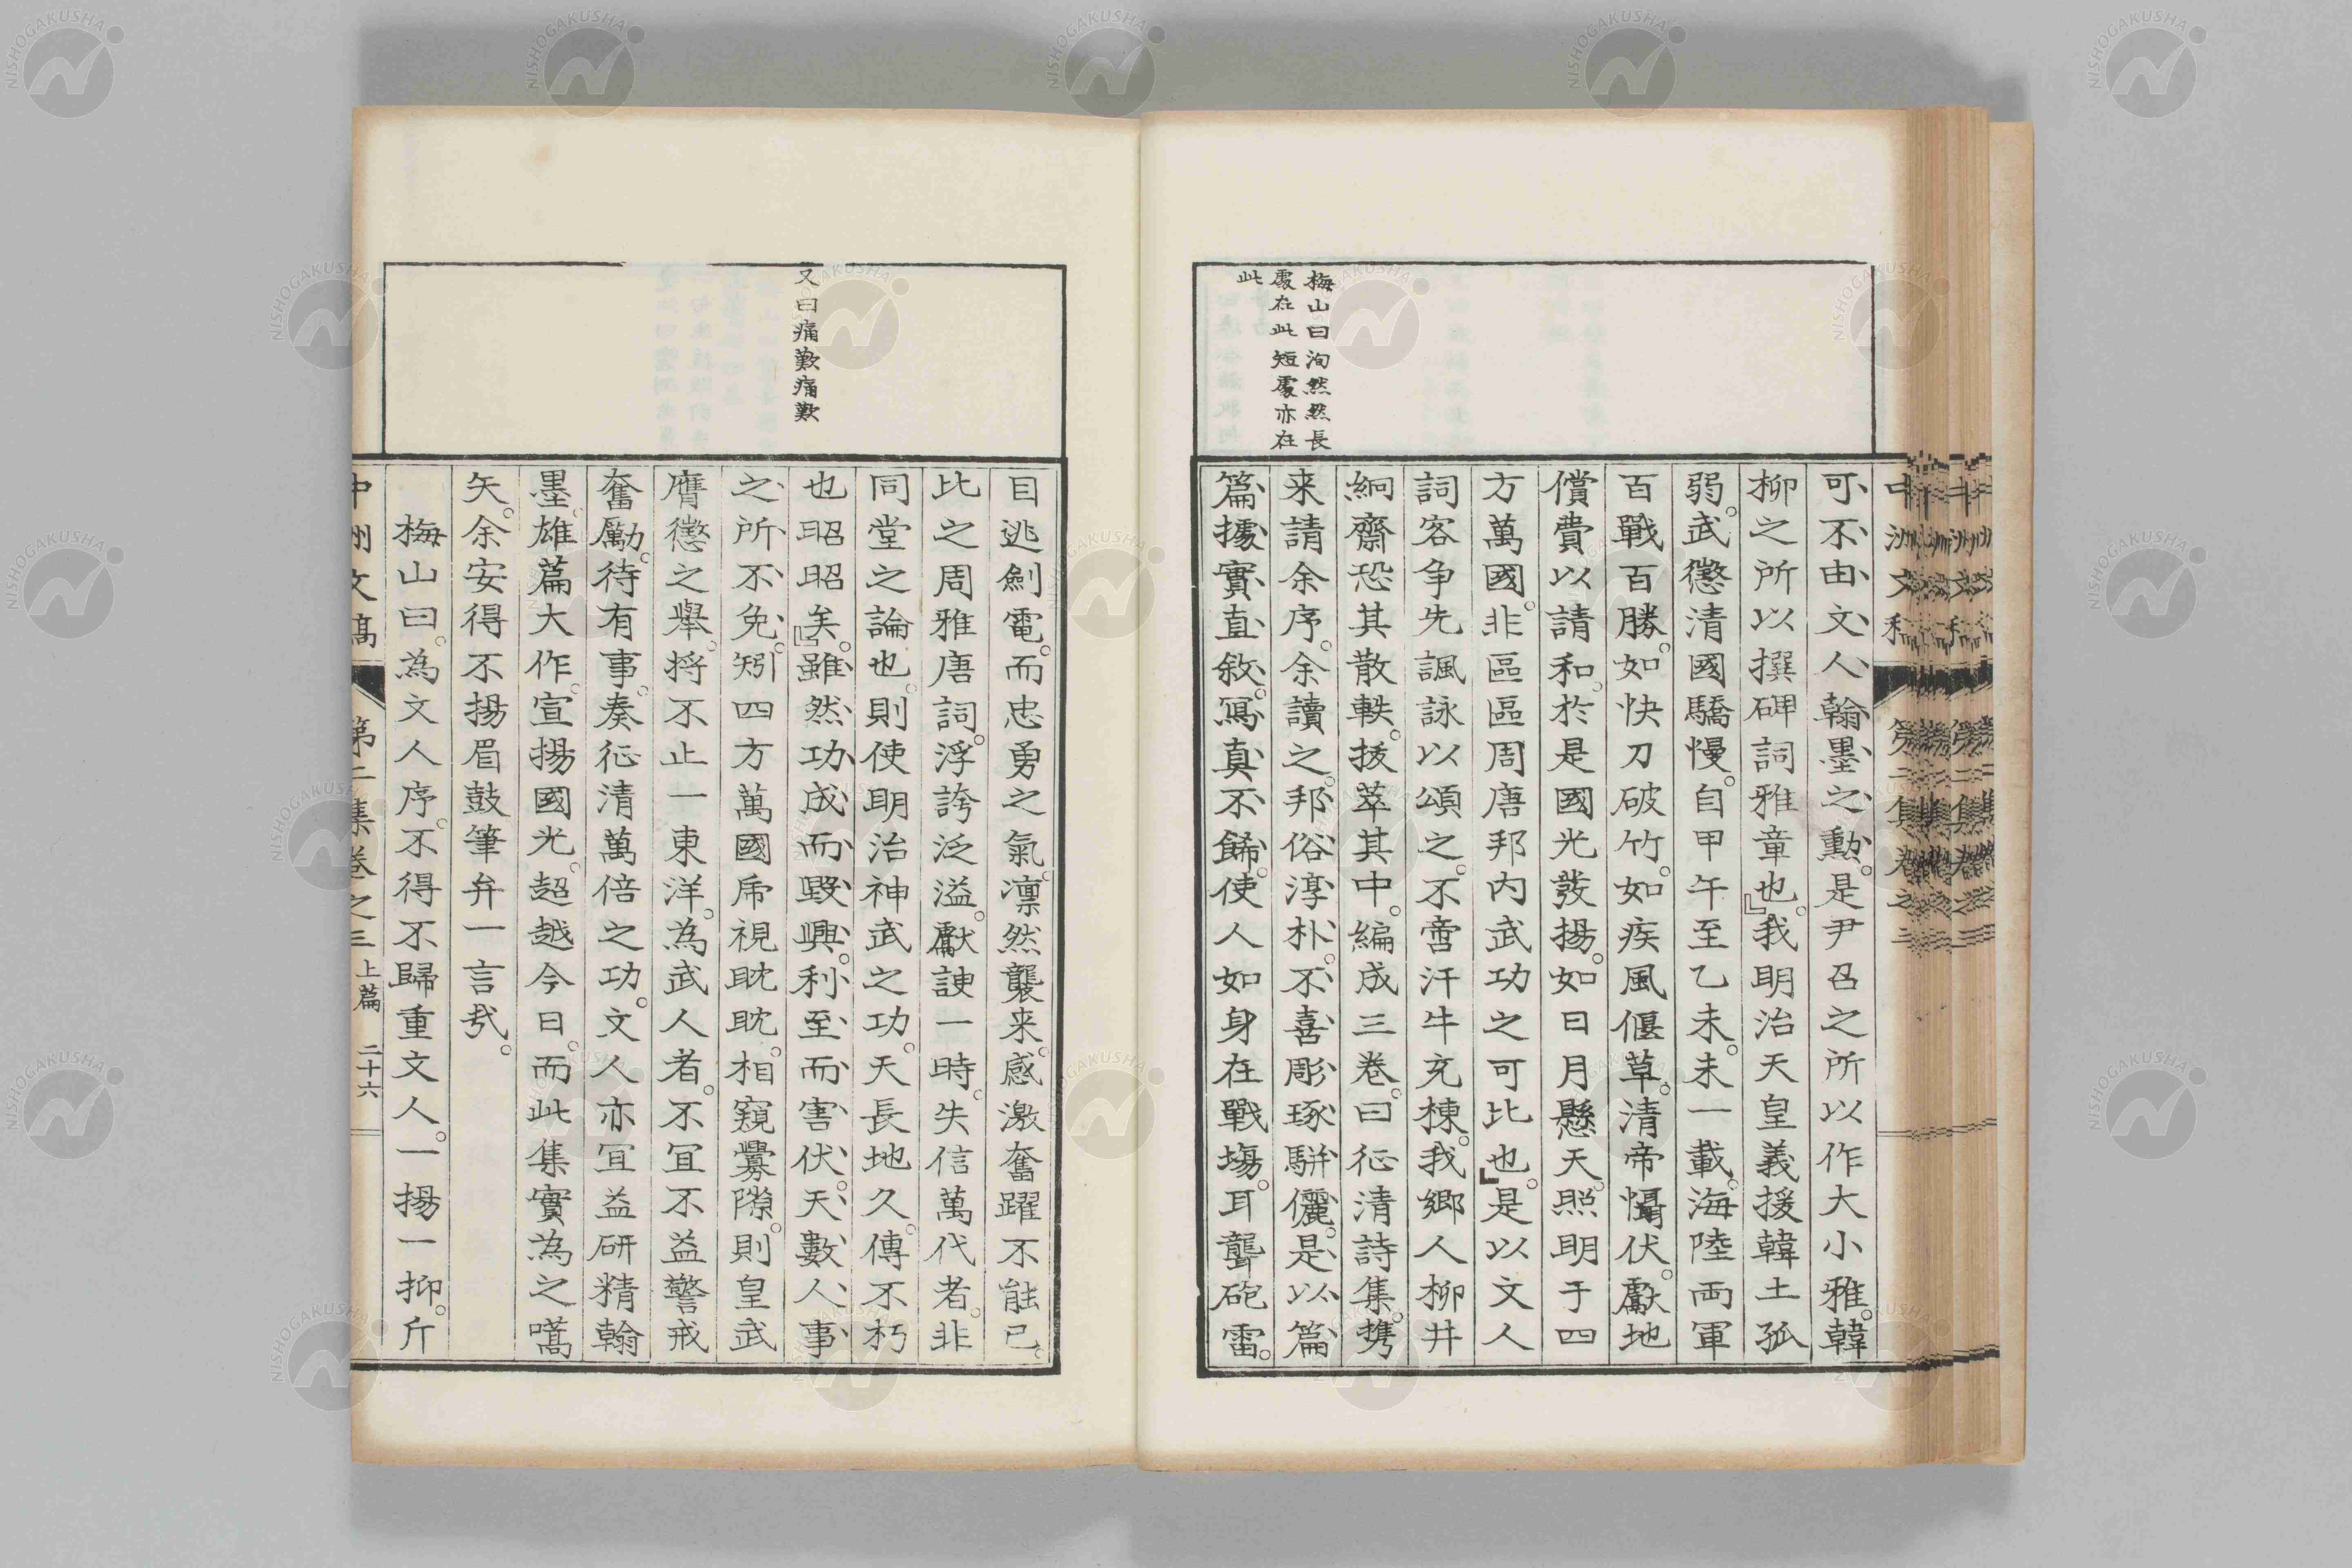 梅山曰洵然然長
處在此短處亦在
此
可不由文人翰墨之勲。是尹召之所以作大小雅。韓
柳之所以撰碑詞雅章也。』我明治天皇義援韓土孤
弱。武懲清國驕慢。自甲午至乙未。未一載。海陸両軍
百戰百勝。如快刀破竹。如疾風偃草。清帝懾伏。獻地
償費以請和。於是國光發揚。如日月懸天。照明于四
方萬國。非區區周唐邦内武功之可比也。』是以文人
詞客争先諷詠以頌之。不啻汗牛充棟。我鄉人柳井
絅齋恐其散軼。拔萃其中。編成三卷。曰征清詩集。携
来請余序。余讀之。邦俗淳朴。不喜彫琢駢儷。是以篇
篇據實直敘。寫真不餙。使人如身在戰塲。耳聾砲雷。
又曰痛歎痛歎
目逃劍電。而忠勇之氣。凛然襲来。感激奮躍不能已。
比之周雅唐詞。浮誇泛溢。獻諛一時。失信萬代者。非
同堂之論也。則使明治神武之功。天長地久。傳不朽
也昭昭矣。』雖然功成而毀興。利至而害伏。天數人事
之所不免。矧四方萬國虎視眈眈。相窺釁隙。則皇武
膺懲之舉。將不止一東洋。為武人者。不宜不益警戒
奮勵。待有事。奏征清萬倍之功。文人亦宜益研精翰
墨。雄篇大作。宣揚國光。超越今日。而此集實為之嚆
矢。余安得不揚眉鼓筆弁一言㢤。
梅山曰。為文人序。不得不歸重文人。一揚一抑。斤
中洲文稿 第二集卷之三 上篇 二十六